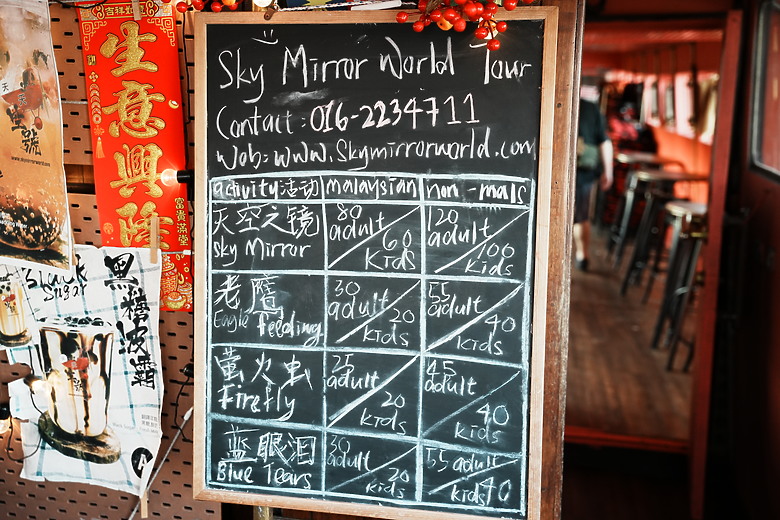 吉祥如意
生意興隆
富貴滿堂
Sky Mirror World Tour
Contact: 016-2234711
Web: www.Skymirrorworld.com
activity活动 malaysian non-mals
天空之镜 Sky Mirror 80 adult 60 kids 120 adult 100 kids
老鹰 Eagle Feeding 30 adult 20 kids 55 adult 40 kids
萤火虫 Firefly 25 adult 20 kids 45 adult 40 kids
蓝眼泪 Blue Tears 30 adult 20 kids 55 adult kids 40
Black Sugar
黑糖波霸